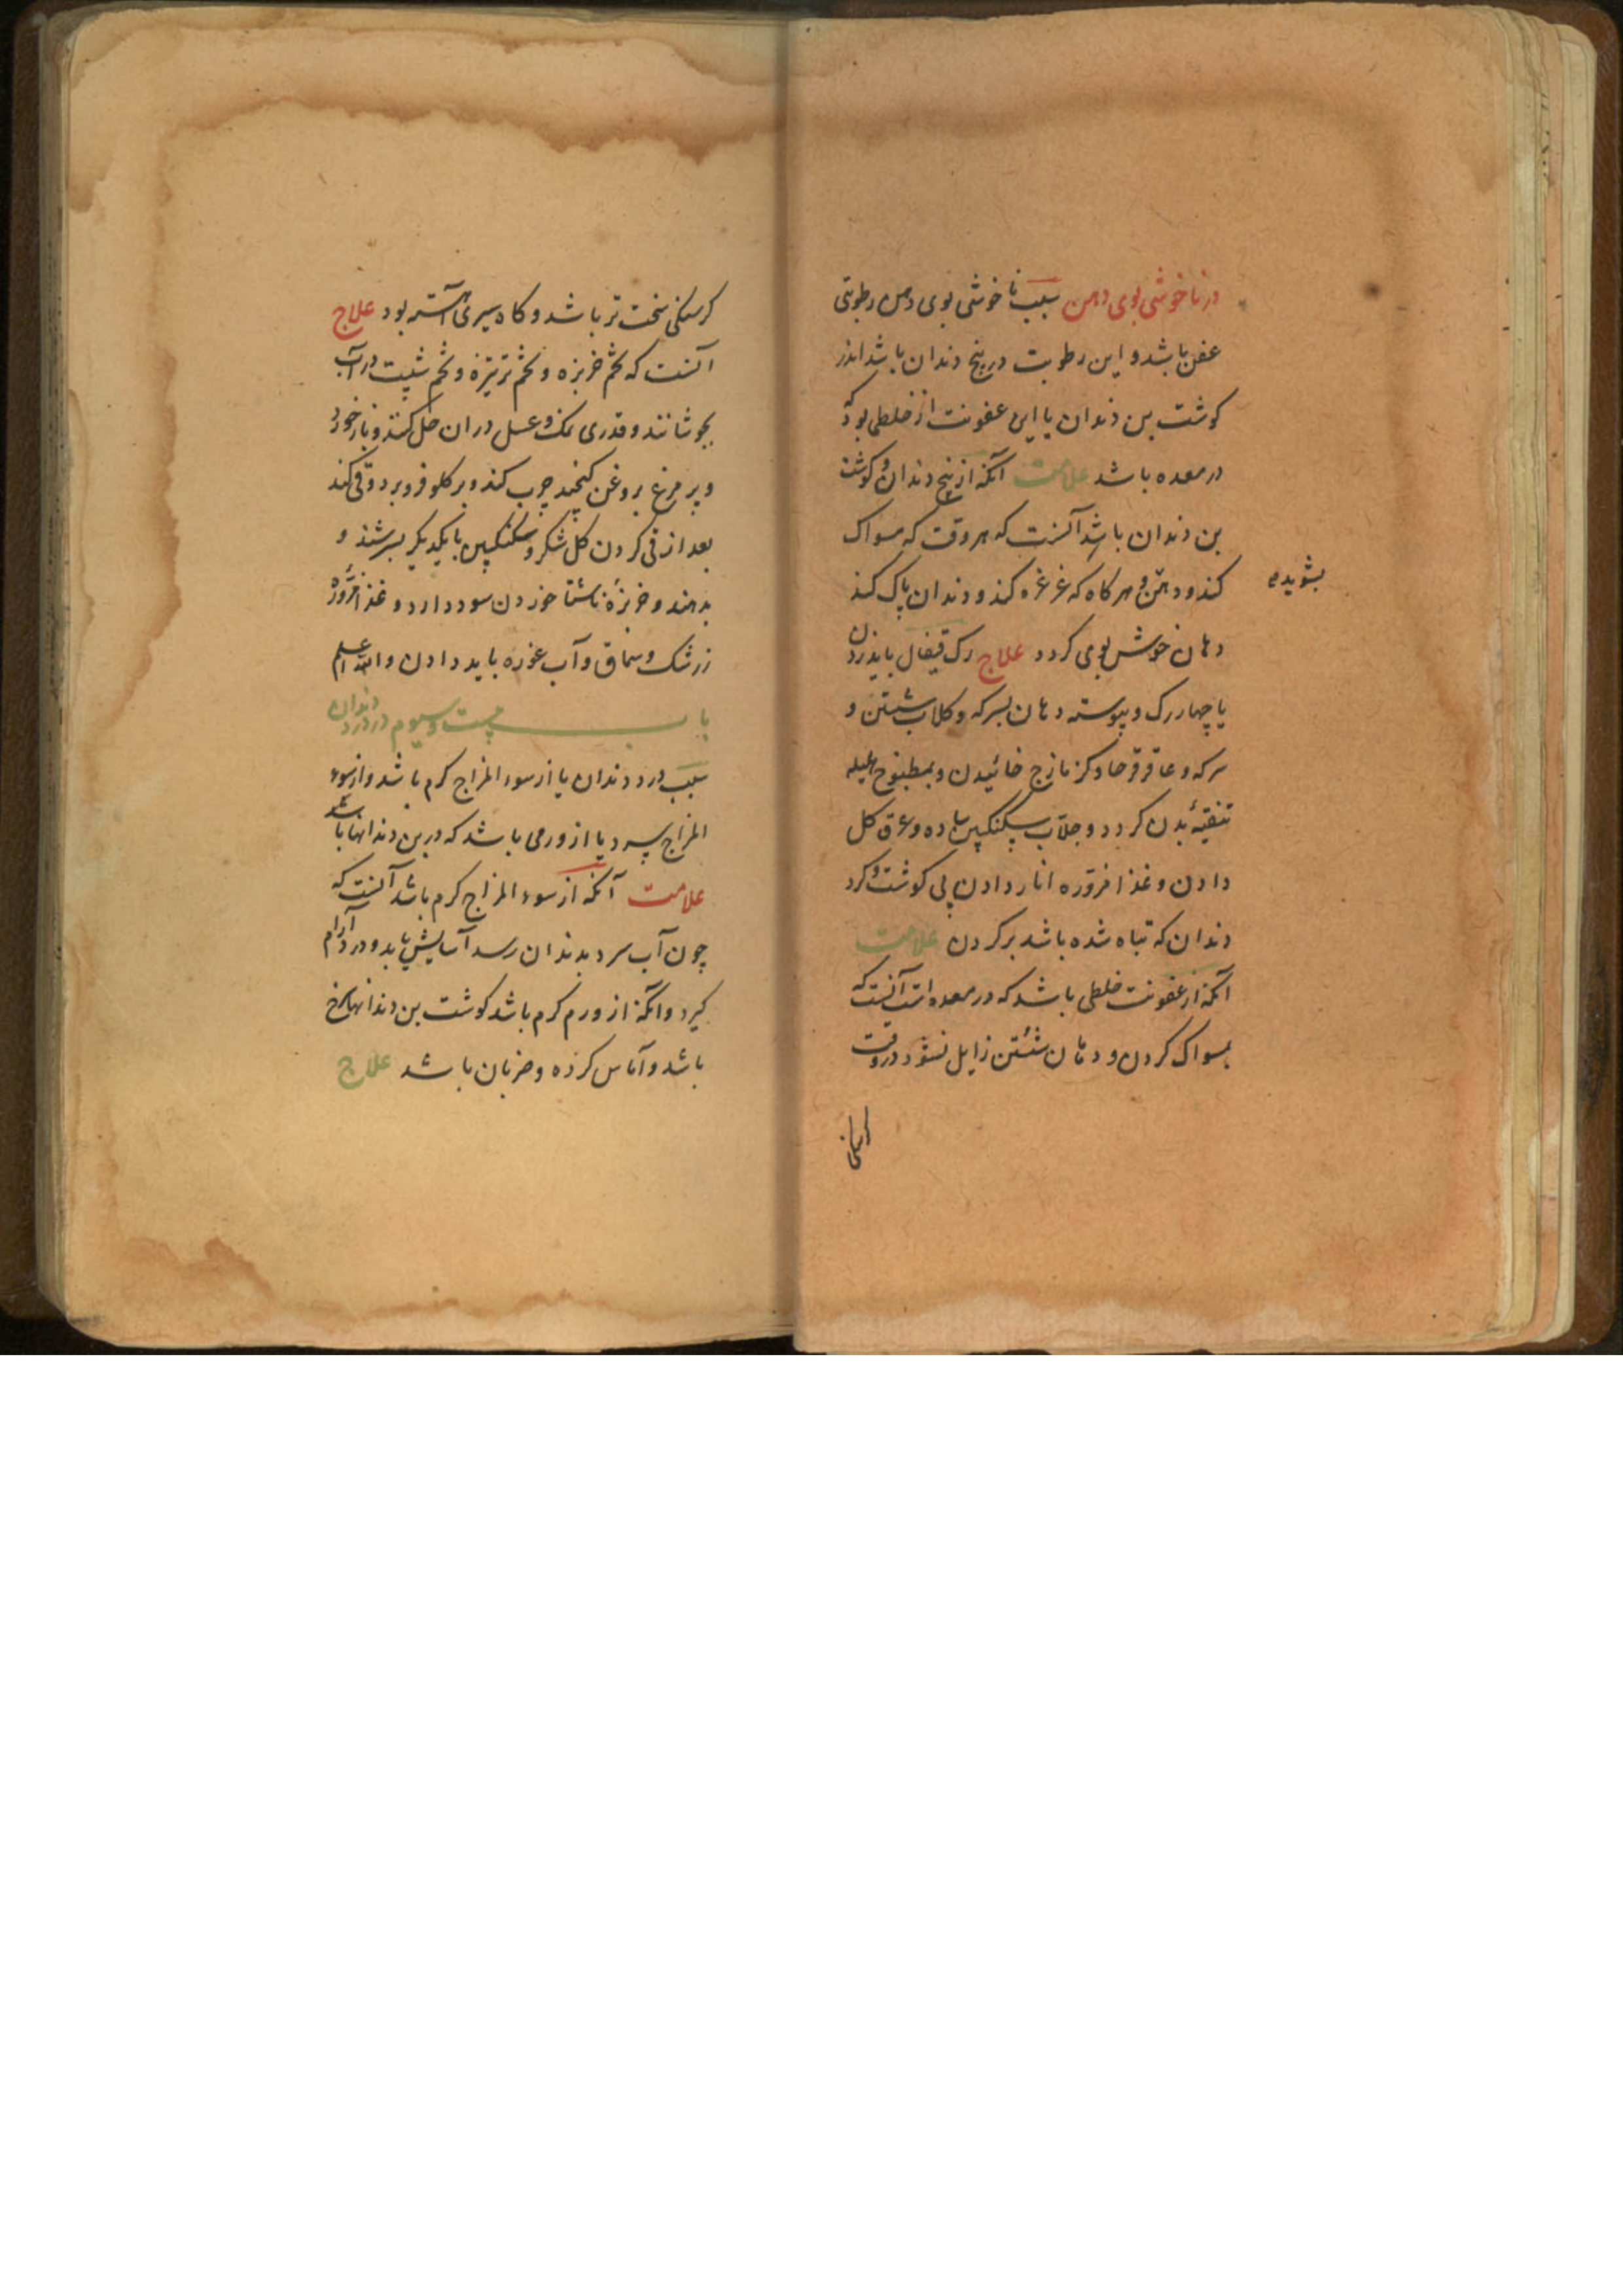 در ناخوشی بوی دهن سبب ناخوشی بوی دهن رطوبتی
عفن باشد و این رطوبت در بیخ دندان باشد اندر
کوشت بن دندان یا این عفونت از خلطی بود که
در معده باشد علامت آنکه از بیخ دندان و کوشت
بن دندان باشد آنست که هر وقت که مسواک
کند و دهن و هر کاه که غرغره کند و دندان پاک کند
بشوید
دهان خوش بوی کردد علاج رک قیفال باید زدن
یا چهار رک و پیوسته دهان بسرکه و کلاب شستن و
سرکه و عاقرقرحا و کزمازج خائیدن و بمطبوخ هلیله
تنقیهٔ بدن کردد و جلاب سکنکبین ساده و عرق کل
دادن و غذا مزوره انار دادن بی کوشت و کرد
دندان که تباه شده باشد بر کردن علامت
آنکه از عفونت خلطی باشد که در معده است آنست که
بمسواک کردن و دهان شستن زایل نشود در وقت
کرسنکی
کرسنکی سخت تر باشد و کاه سیری آهسته بود علاج
آنست که تخم خربزه و تخم ترتیزه و تخم شبت در آب
بجوشانند و قدری نمک و عسل در ان حل کنند و باز خورد
و پر مرغ بروغن کنجد چرب کند و بر کلو فرو برد و قی کند
بعد از قی کردن کل شکر و سکنکبین با یکدیکر بسرشند و
بدهند و خربزهٔ ناشتا خوردن سود دارد و غذا مزوره
زرشک و سماق و آب غوره باید دادن والله اعلم
باب بیست و سیوم در درد دندان
سبب درد دندان یا از سوء المزاج کرم باشد و از سوء
المزاج سرد یا از ورمی باشد که در بن دندانها باشد
علامت آنکه از سوء المزاج کرم باشد آنست که
چون آب سرد بدندان رسد آسایش یابد و درد آرام
کیرد و آنکه از ورم کرم باشد کوشت بن دندانها سرخ
باشد و آماس کرده و ضربان باشد علاج